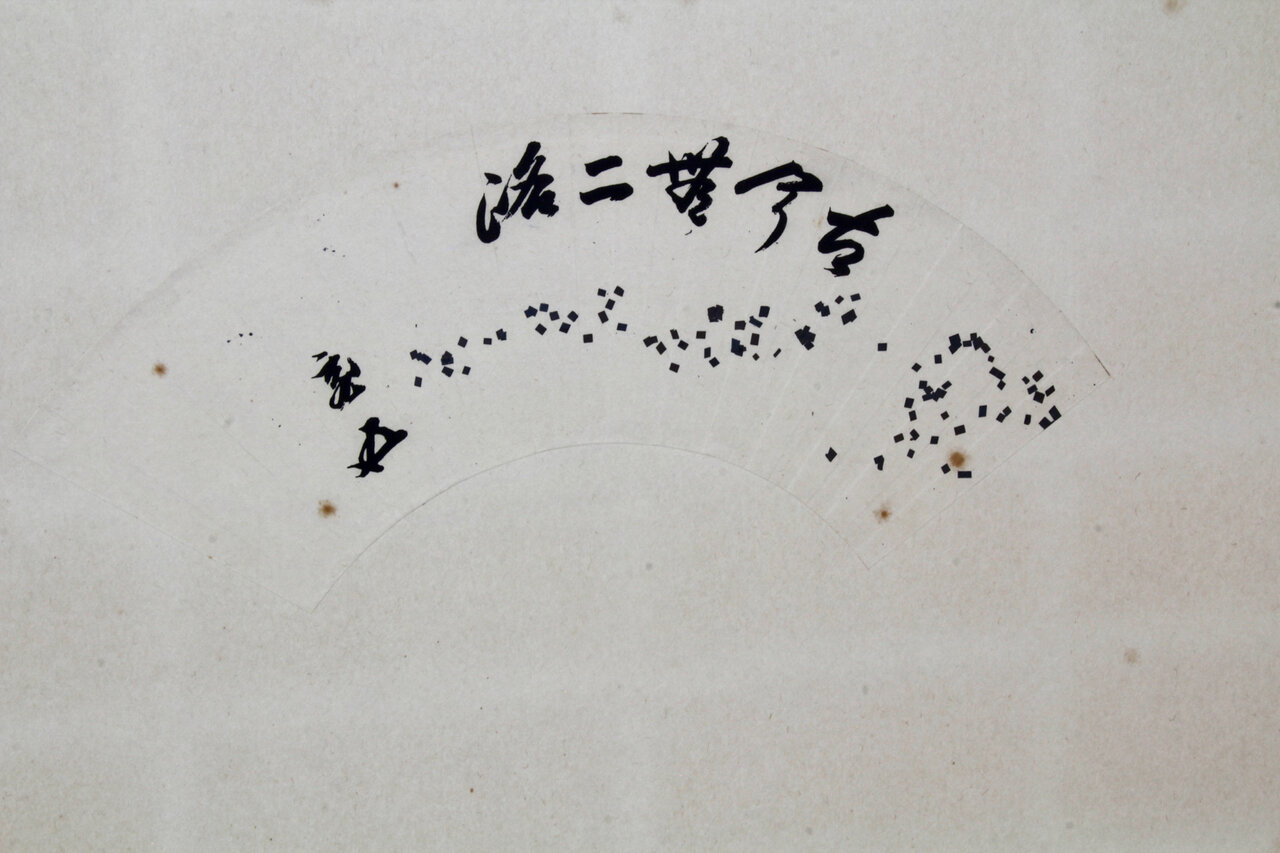 古今無二路